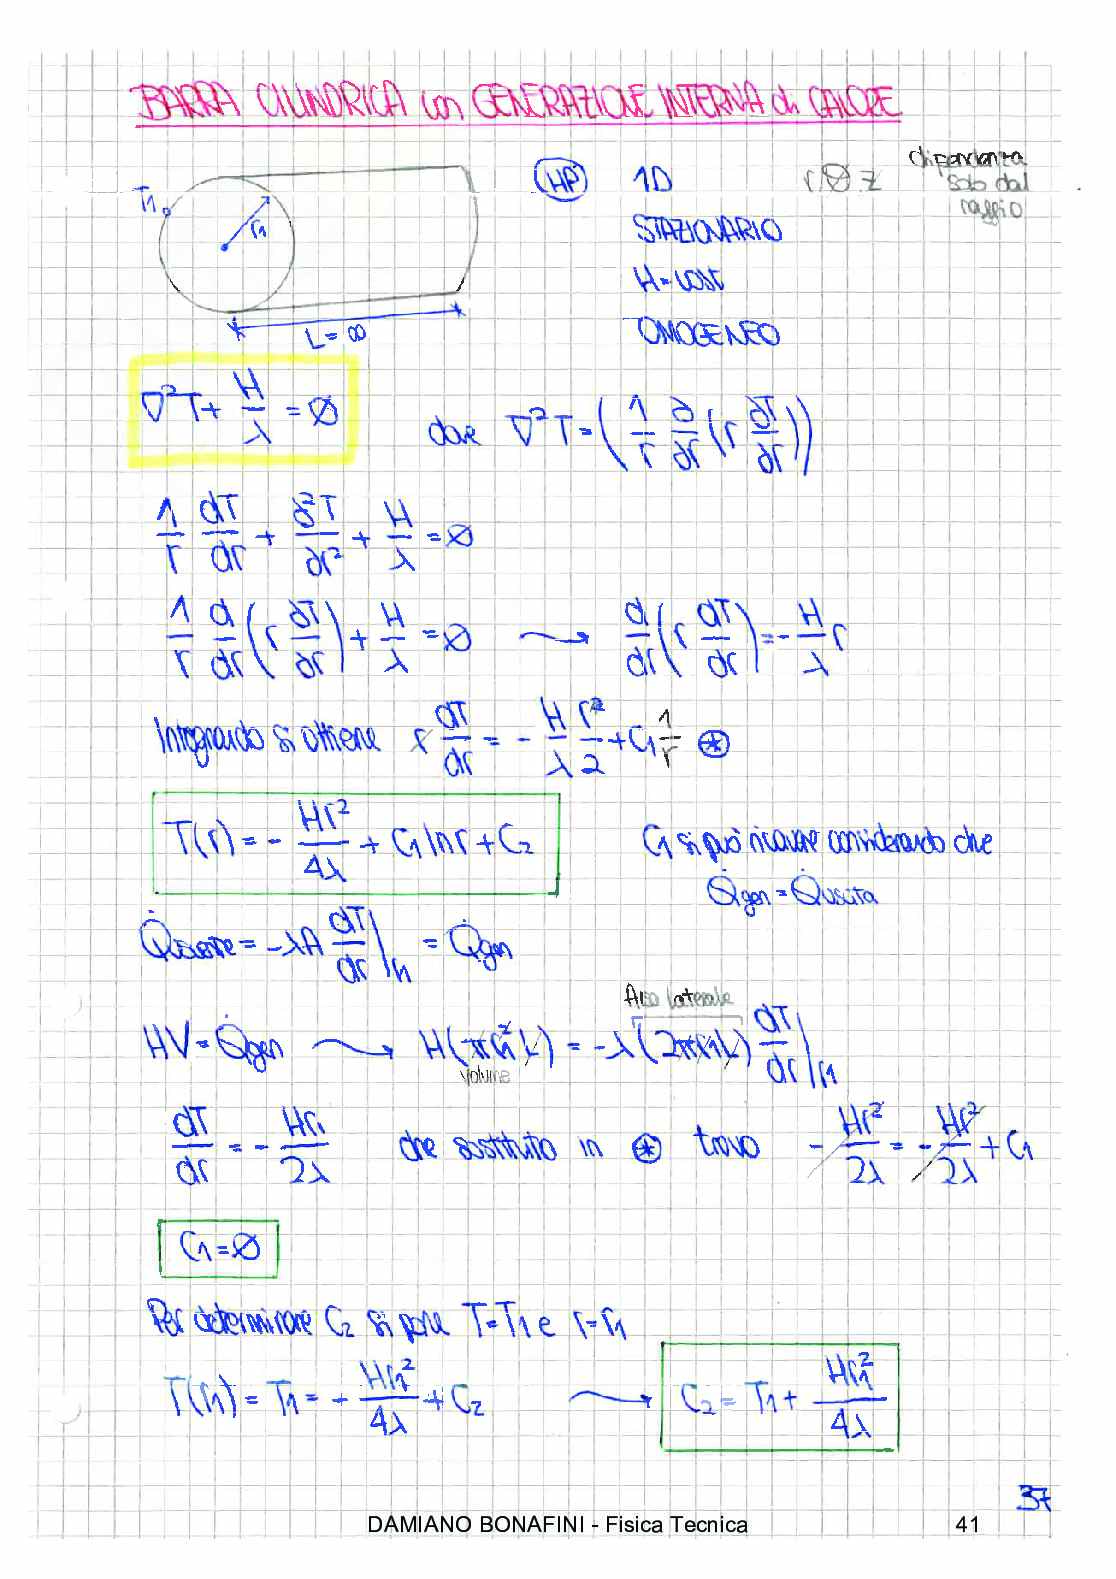 BARRA CILINDRICA con GENERAZIONE INTERNA di CALORE
T1
r1
L = ∞
HP 1D r ∅ z dipendenza solo dal raggio
STAZIONARIO
H = cost
OMOGENEO
∇²T + H/λ = ∅ dove ∇²T = (1/r ∂/∂r (r ∂T/∂r))
1/r dT/dr + ∂²T/∂r² + H/λ = ∅
1/r d/dr (r ∂T/∂r) + H/λ = ∅ → d/dr (r dT/dr) = - H/λ r
Integrando si ottiene r dT/dr = - H/λ r²/2 + C1 1/r ⊛
T(r) = - Hr²/4λ + C1 ln r + C2 C1 si può ricavare considerando che
Q̇gen = Q̇uscita
Q̇uscente = -λA dT/dr |r1 = Q̇gen
Area laterale
HV = Q̇gen → H(πr1²L) = -λ(2πr1L) dT/dr |r1
Volume
dT/dr = - Hr1/2λ che sostituito in ⊛ trovo - Hr²/2λ = - Hr²/2λ + C1
C1 = ∅
Per determinare C2 si pone T = T1 e r = r1
T(r1) = T1 = - Hr1²/4λ + C2 → C2 = T1 + Hr1²/4λ
37
DAMIANO BONAFINI - Fisica Tecnica 41